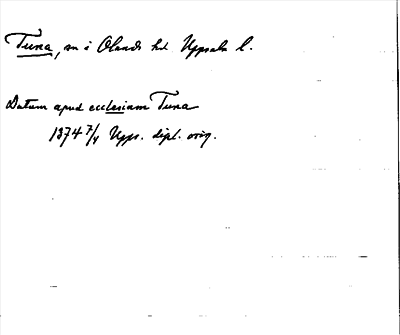 Tuna, sn i Olands hd Uppsala l.
Datum apud ecclesiam Tuna
1374 7/4 Upps. dipl. orig.